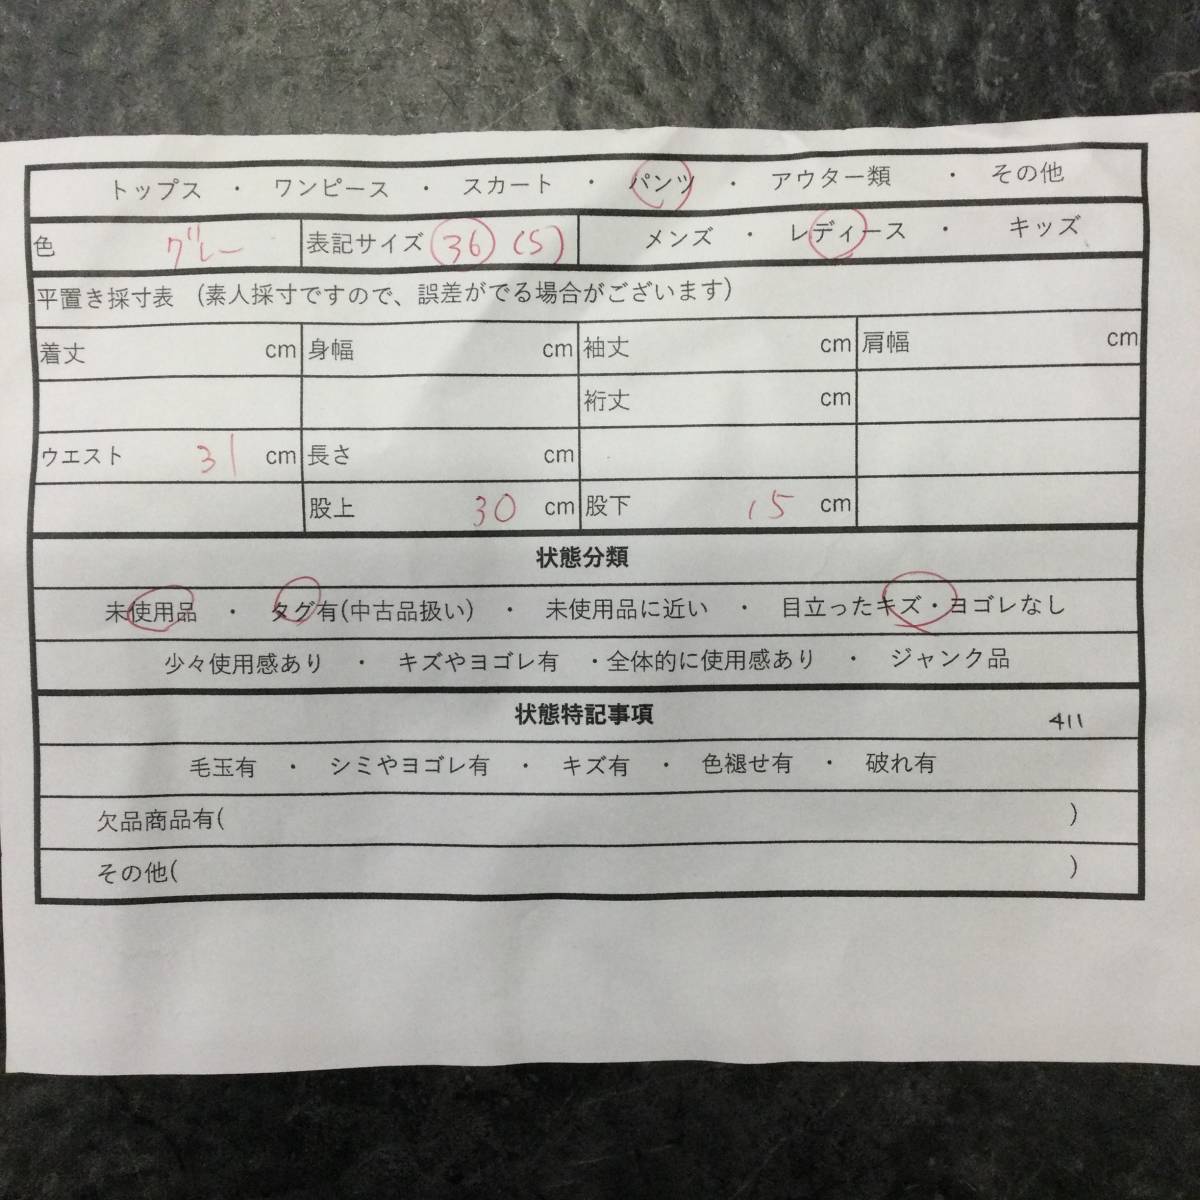 トップス ・ ワンピース ・ スカート ・ パンツ ・ アウター類 ・ その他
色 グレー 表記サイズ 36 (S) メンズ ・ レディース ・ キッズ
平置き採寸表 (素人採寸ですので、誤差がでる場合がございます)
着丈 cm 身幅 cm 袖丈 cm 肩幅 cm
裄丈 cm
ウエスト 31 cm 長さ cm
股上 30 cm 股下 15 cm
状態分類
未使用品 ・ タグ有(中古品扱い) ・ 未使用品に近い ・ 目立ったキズ・ヨゴレなし
少々使用感あり ・ キズやヨゴレ有 ・全体的に使用感あり ・ ジャンク品
状態特記事項 411
毛玉有 ・ シミやヨゴレ有 ・ キズ有 ・ 色褪せ有 ・ 破れ有
欠品商品有( )
その他( )